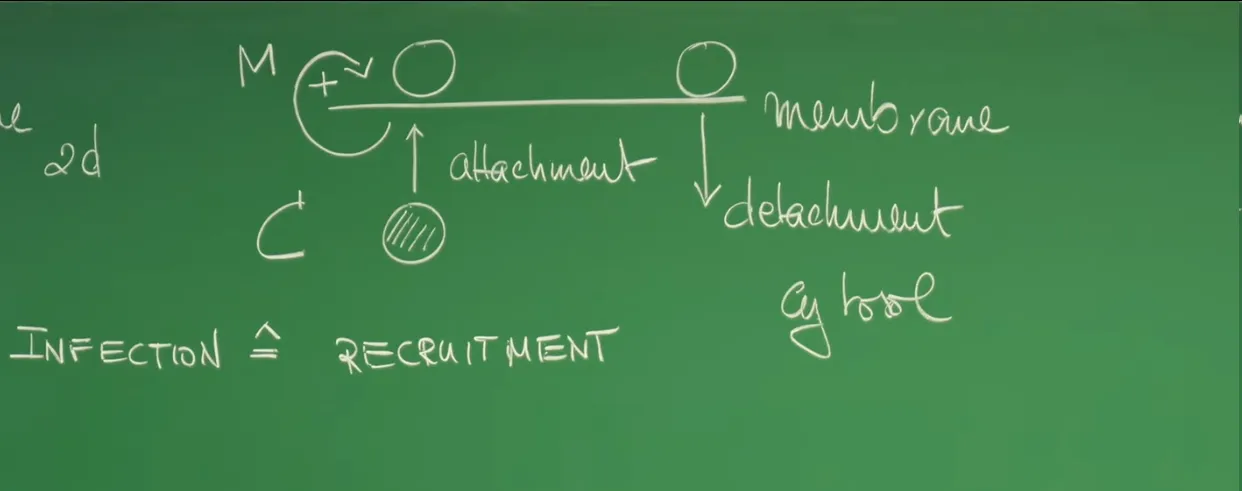 M +
membrane
2d
attachment
C
detachment
cytosol
INFECTION ≙ RECRUITMENT